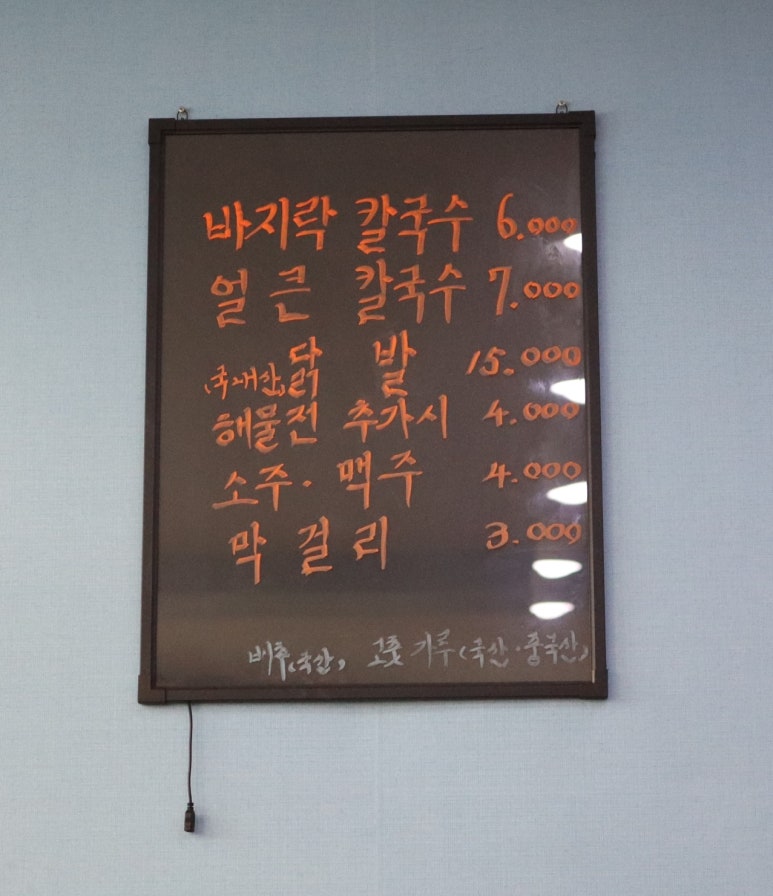 바지락 칼국수 6.000
얼큰 칼국수 7.000
(국내산) 닭발 15.000
해물전 추가시 4.000
소주·맥주 4.000
막걸리 3.000
배추(국산) 고춧가루(국산·중국산)